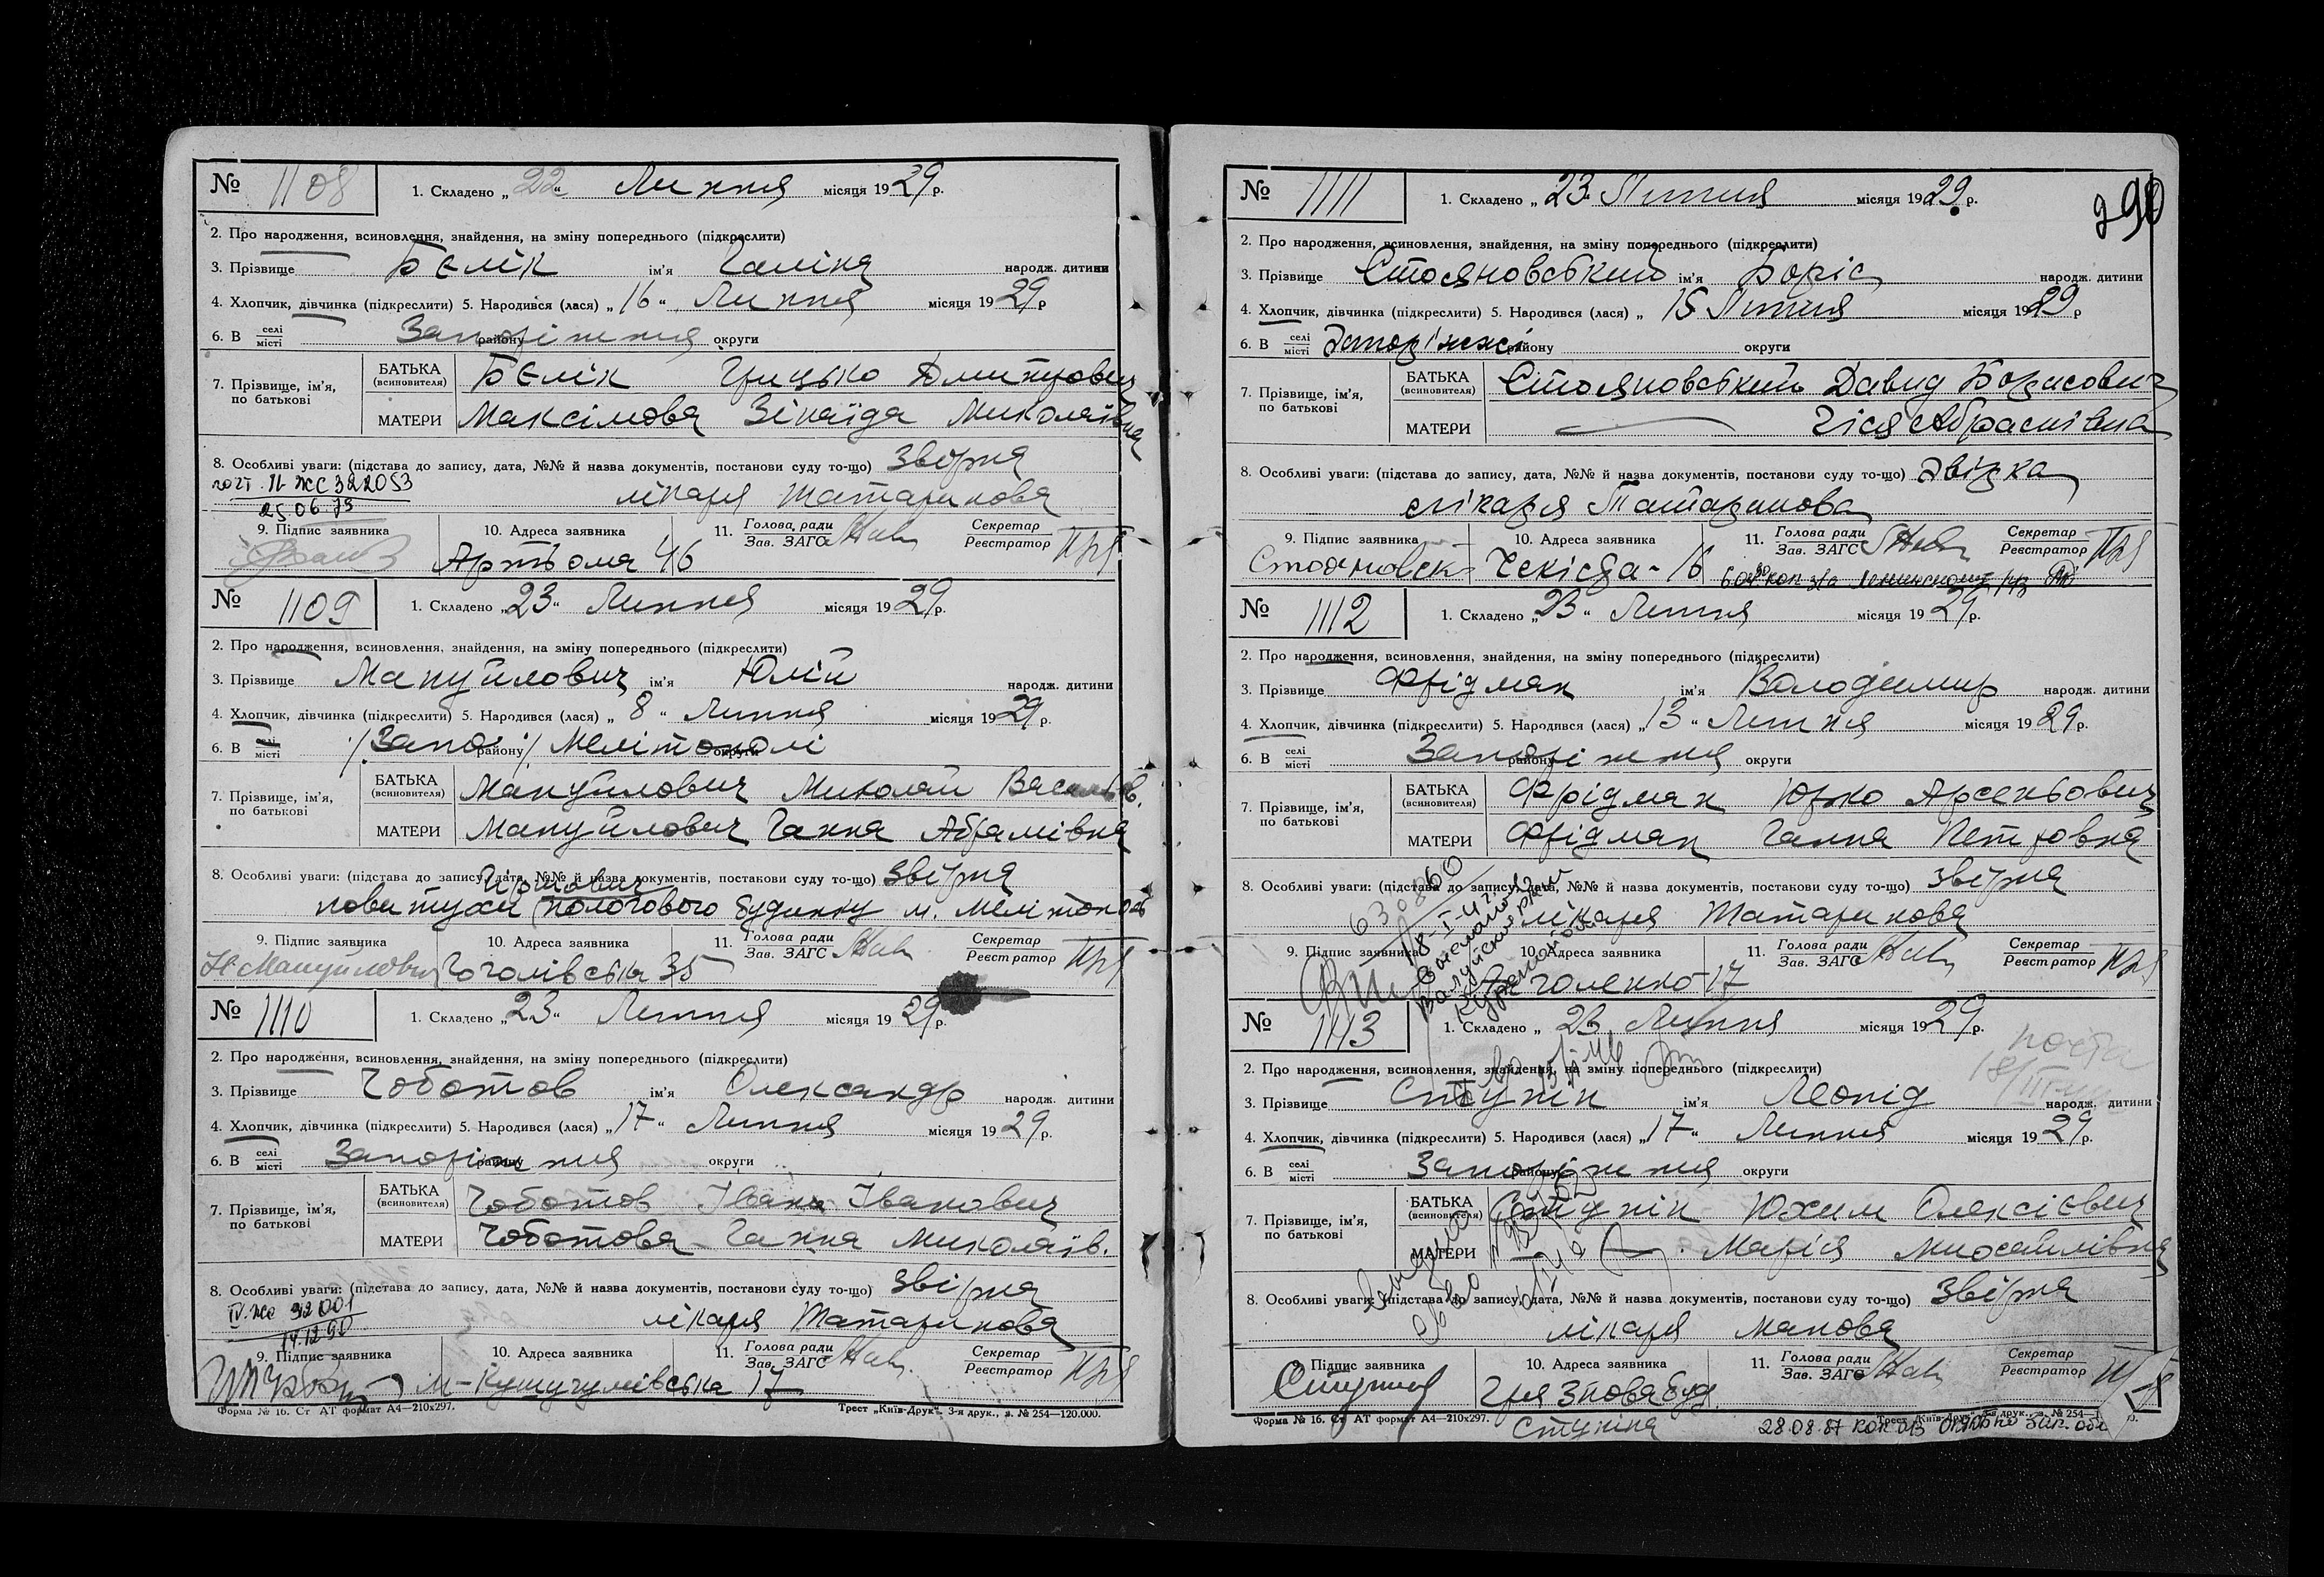 № 1108 1. Складено „22“ Липня місяця 1929 р.
2. Про народження, всиновлення, знайдення, на зміну попереднього (підкреслити)
3. Прізвище Бєлік ім'я Галіна народж. дитини
4. Хлопчик, дівчинка (підкреслити) 5. Народився (лася) „16“ Липня місяця 1929 р
6. В селі місті Запоріжжя району округи
7. Прізвище, ім'я, по батькові БАТЬКА (всиновителя) Бєлік Грицько Дмитрович
МАТЕРИ Максімова Зінаїда Миколаївна
8. Особливі уваги: (підстава до запису, дата, №№ й назва документів, постанови суду то-що) Звірка
лікаря Татаринова
25.06.73
9. Підпис заявника 10. Адреса заявника Артьома 46 11. Голова ради Зав. ЗАГС Секретар Реєстратор
№ 1109 1. Складено „23“ Липня місяця 1929 р.
2. Про народження, всиновлення, знайдення, на зміну попереднього (підкреслити)
3. Прізвище Мануйлович ім'я Юлій народж. дитини
4. Хлопчик, дівчинка (підкреслити) 5. Народився (лася) „8“ Липня місяця 1929 р.
6. В селі місті /Запо/ району Мелітополі округи
7. Прізвище, ім'я, по батькові БАТЬКА (всиновителя) Мануйлович Миколай Васильов.
МАТЕРИ Мануйлович Ганна Абрамівна
8. Особливі уваги: (підстава до запису, дата, №№ й назва документів, постанови суду то-що) Звірка
повитухи пологового будинку м. Мелітополь
9. Підпис заявника Н Мануйлович 10. Адреса заявника Гоголівська 35 11. Голова ради Зав. ЗАГС Секретар Реєстратор
№ 1110 1. Складено „23“ Липня місяця 1929 р.
2. Про народження, всиновлення, знайдення, на зміну попереднього (підкреслити)
3. Прізвище Чоботов ім'я Олександр народж. дитини
4. Хлопчик, дівчинка (підкреслити) 5. Народився (лася) „17“ Липня місяця 1929 р.
6. В селі місті Запоріжжя району округи
7. Прізвище, ім'я, по батькові БАТЬКА (всиновителя) Чоботов Іван Іванович
МАТЕРИ Чоботова Ганна Миколаїв.
8. Особливі уваги: (підстава до запису, дата, №№ й назва документів, постанови суду то-що) Звірка
лікаря Татаринова
14.12.90
9. Підпис заявника 10. Адреса заявника М-Кушугумівська 17 11. Голова ради Зав. ЗАГС Секретар Реєстратор
Форма № 16. Ст АТ формат А4—210х297. Трест „Київ-Друк“. 3-я друк., з. № 254—120.000.
290
№ 1111 1. Складено „23“ Липня місяця 1929 р.
2. Про народження, всиновлення, знайдення, на зміну попереднього (підкреслити)
3. Прізвище Стояновський ім'я Боріс народж. дитини
4. Хлопчик, дівчинка (підкреслити) 5. Народився (лася) „15 Липня місяця 1929 р
6. В селі місті Запоріжжі району округи
7. Прізвище, ім'я, по батькові БАТЬКА (всиновителя) Стояновський Давид Борисович
МАТЕРИ — Гіся Абрамівна
8. Особливі уваги: (підстава до запису, дата, №№ й назва документів, постанови суду то-що) Звірка
лікаря Татаринова
9. Підпис заявника Стояновск 10. Адреса заявника Чекіста-16 11. Голова ради Зав. ЗАГС Секретар Реєстратор
№ 1112 1. Складено „23“ Липня місяця 1929 р.
2. Про народження, всиновлення, знайдення, на зміну попереднього (підкреслити)
3. Прізвище Фрідман ім'я Володимир народж. дитини
4. Хлопчик, дівчинка (підкреслити) 5. Народився (лася) „13“ Липня місяця 1929 р.
6. В селі місті Запоріжжя району округи
7. Прізвище, ім'я, по батькові БАТЬКА (всиновителя) Фрідман Юрко Арсеньович
МАТЕРИ Фрідман Ганна Петровна
8. Особливі уваги: (підстава до запису, дата, №№ й назва документів, постанови суду то-що) Звірка
лікаря Татаринова
9. Підпис заявника 10. Адреса заявника 17 11. Голова ради Зав. ЗАГС Секретар Реєстратор
№ 1113 1. Складено „23 Липня місяця 1929 р.
2. Про народження, всиновлення, знайдення, на зміну попереднього (підкреслити)
3. Прізвище Ступнін ім'я Леонід народж. дитини
4. Хлопчик, дівчинка (підкреслити) 5. Народився (лася) „17“ Липня місяця 1929 р.
6. В селі місті Запоріжжя району округи
7. Прізвище, ім'я, по батькові БАТЬКА (всиновителя) Юхим Олексієвич
МАТЕРИ Марія Михайлівна
8. Особливі уваги: (підстава до запису, дата, №№ й назва документів, постанови суду то-що) Звірка
лікаря Манова
9. Підпис заявника 10. Адреса заявника 11. Голова ради Зав. ЗАГС Секретар Реєстратор
Форма № 16. Ст АТ формат А4—210х297. Трест „Київ-Друк“ 3-я друк., з. № 254—
28.08.87